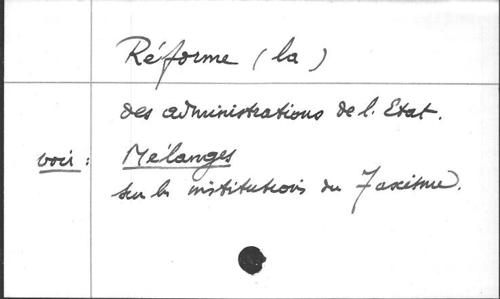 Réforme (la)
des administrations de l. Etat.
voir : Mélanges
sur les institutions du Fascisme.